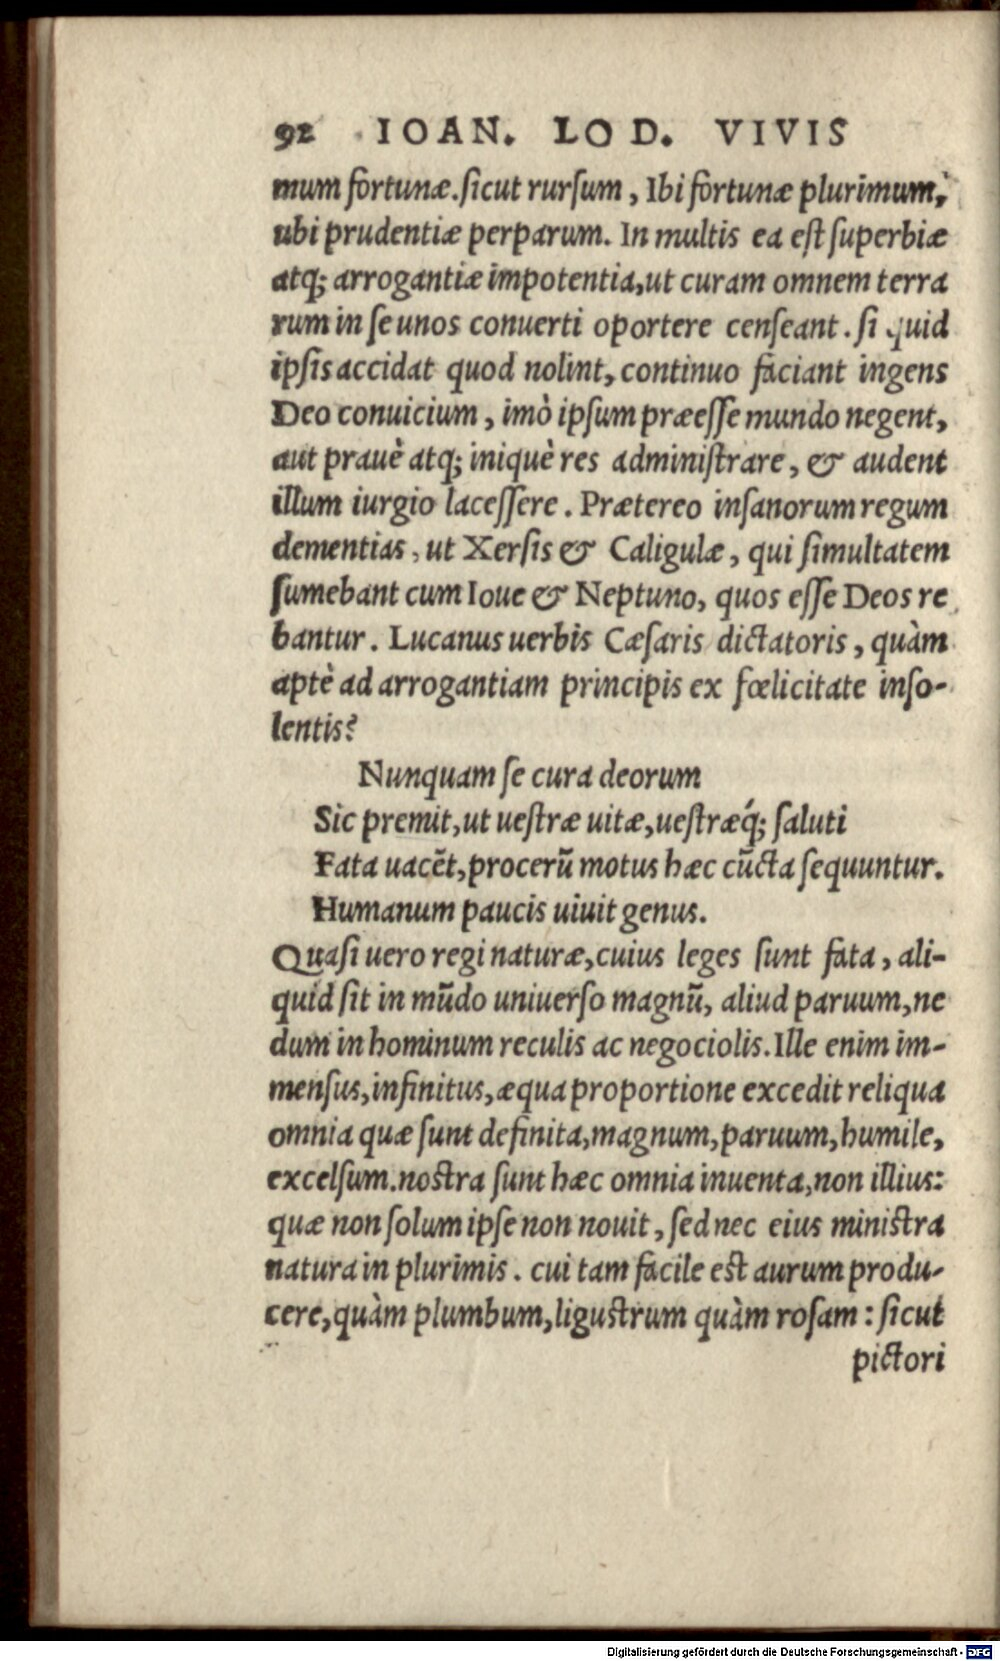 92 IOAN. LOD. VIVIS
mum fortunæ. ſicut rurſum, Ibi fortunæ plurimum,
ubi prudentiæ perparum. In multis ea eſt ſuperbiæ
atq; arrogantiæ impotentia, ut curam omnem terra
rum in ſe unos conuerti oportere cenſeant. ſi quid
ipſis accidat quod nolint, continuo faciant ingens
Deo conuicium, imò ipſum præeſſe mundo negent,
aut prauè atq; iniquè res adminiſtrare, & audent
illum iurgio laceſſere. Prætereo inſanorum regum
dementias, ut Xerſis & Caligulæ, qui ſimultatem
ſumebant cum Ioue & Neptuno, quos eſſe Deos re
bantur. Lucanus uerbis Cæſaris dictatoris, quàm
aptè ad arrogantiam principis ex fœlicitate inſo-
lentis?
Nunquam ſe cura deorum
Sic premit, ut ueſtræ uitæ, ueſtræq́; ſaluti
Fata uacẽt, procerũ motus hæc cũcta ſequuntur.
Humanum paucis uiuit genus.
Quaſi uero regi naturæ, cuius leges ſunt fata, ali-
quid ſit in mũdo uniuerſo magnũ, aliud paruum, ne
dum in hominum reculis ac negociolis. Ille enim im-
menſus, infinitus, æqua proportione excedit reliqua
omnia quæ ſunt definita, magnum, paruum, humile,
excelſum. noſtra ſunt hæc omnia inuenta, non illius:
quæ non ſolum ipſe non nouit, ſed nec eius miniſtra
natura in plurimis. cui tam facile eſt aurum produ-
cere, quàm plumbum, liguſtrum quàm roſam: ſicut
pictori
Digitalisierung gefördert durch die Deutsche Forschungsgemeinschaft - DFG